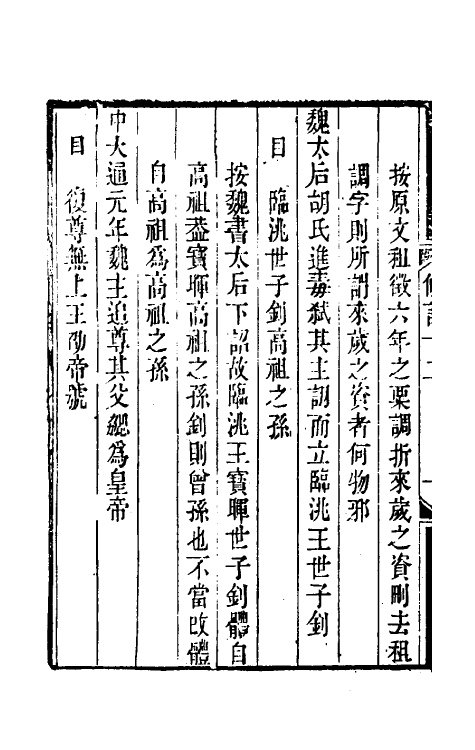 按原文租徵六年之粟調折來歲之資刪去租
調字則所謂來歲之資者何物邪
魏太后胡氏進毒弒其主詡而立臨洮王世子釗
目　臨洮世子釗高祖之孫
按魏書太后下詔故臨洮王寶暉世子釗體自
高祖蓋寶暉高祖之孫釗則曾孫也不當改體
自高祖為高祖之孫
中大通元年魏主追尊其父勰為皇帝
目　復尊無上王劭帝號